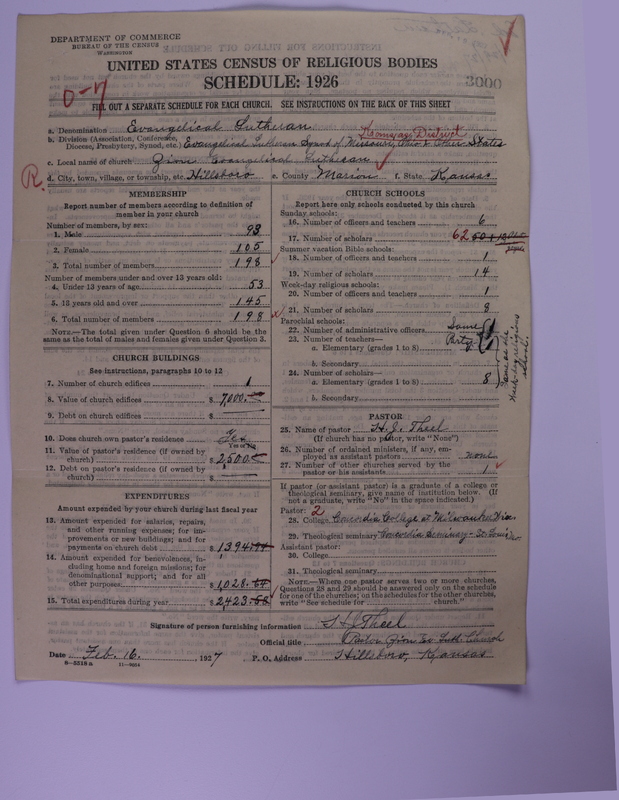 DEPARTMENT OF COMMERCE
BUREAU OF THE CENSUS
WASHINGTON
UNITED STATES CENSUS OF RELIGIOUS BODIES
SCHEDULE: 1926
3000
0-7
FILL OUT A SEPARATE SCHEDULE FOR EACH CHURCH. SEE INSTRUCTIONS ON THE BACK OF THIS SHEET
a. Denomination Evangelical Lutheran
b. Division (Association, Conference, Diocese, Presbytery, Synod, etc.) Evangelical Lutheran Synod of Missouri, Ohio & Other States
District
c. Local name of church Zion Evangelical Lutheran
R. d. City, town, village, or township, etc. Hillsboro e. County Marion f. State Kansas
MEMBERSHIP
Report number of members according to definition of
member in your church
Number of members, by sex:
1. Male 93
2. Female 105
3. Total number of members 198
Number of members under and over 13 years old:
4. Under 13 years of age 53
5. 13 years old and over 145
6. Total number of members 198
NOTE.—The total given under Question 6 should be the
same as the total of males and females given under Question 3.
CHURCH BUILDINGS
See instructions, paragraphs 10 to 12
7. Number of church edifices 1
8. Value of church edifices $ 7,000.
9. Debt on church edifices $
10. Does church own pastor's residence Yes
11. Value of pastor's residence (if owned by
church) $ 2500.
12. Debt on pastor's residence (if owned by
church) $
EXPENDITURES
Amount expended by your church during last fiscal year
13. Amount expended for salaries, repairs,
and other running expenses; for im-
provements or new buildings; and for
payments on church debt $ 1394
14. Amount expended for benevolences, in-
cluding home and foreign missions; for
denominational support; and for all
other purposes $ 1,028.
15. Total expenditures during year $ 2423.
CHURCH SCHOOLS
Report here only schools conducted by this church
Sunday schools:
16. Number of officers and teachers 6
17. Number of scholars 62 50+12
Summer vacation Bible schools:
18. Number of officers and teachers 1
19. Number of scholars 14
Week-day religious schools:
20. Number of officers and teachers 1
21. Number of scholars 8
Parochial schools:
22. Number of administrative officers Same
23. Number of teachers— Party
a. Elementary (grades 1 to 8)
b. Secondary
24. Number of scholars—
a. Elementary (grades 1 to 8) 8
b. Secondary
Same as the
Week-day religious
school.
PASTOR
25. Name of pastor H. J. Theel
(If church has no pastor, write "None")
26. Number of ordained ministers, if any, em-
ployed as assistant pastors none
27. Number of other churches served by the
pastor or his assistants 1
If pastor (or assistant pastor) is a graduate of a college or
theological seminary, give name of institution below. (If
not a graduate, write "No" in the space indicated.)
Pastor: 2
28. College Concordia College at Milwaukee Wis.
29. Theological seminary Concordia Seminary - St. Louis Mo.
Assistant pastor:
30. College
31. Theological seminary
NOTE.—Where one pastor serves two or more churches,
Questions 28 and 29 should be answered only on the schedule
for one of the churches; on the schedules for the other churches,
write "See schedule for church."
Signature of person furnishing information H J Theel
Official title Pastor Zion Ev. Luth Church
Date Feb. 16, 1927 P. O. Address Hillsboro, Kansas
8—5518 a